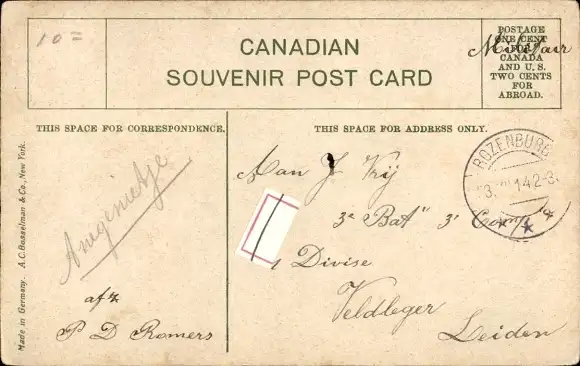 10=
CANADIAN
SOUVENIR POST CARD
POSTAGE
ONE CENT
FOR
CANADA
AND U. S.
TWO CENTS
FOR
ABROAD.
Militair
THIS SPACE FOR CORRESPONDENCE.
THIS SPACE FOR ADDRESS ONLY.
Made in Germany. A.C. Bosselman & Co., New York.
ROZENBURG
Aan J Krij
3e Bat" 3e Comp
1 Divise
Veldleger
Leiden
afz
P D Romers